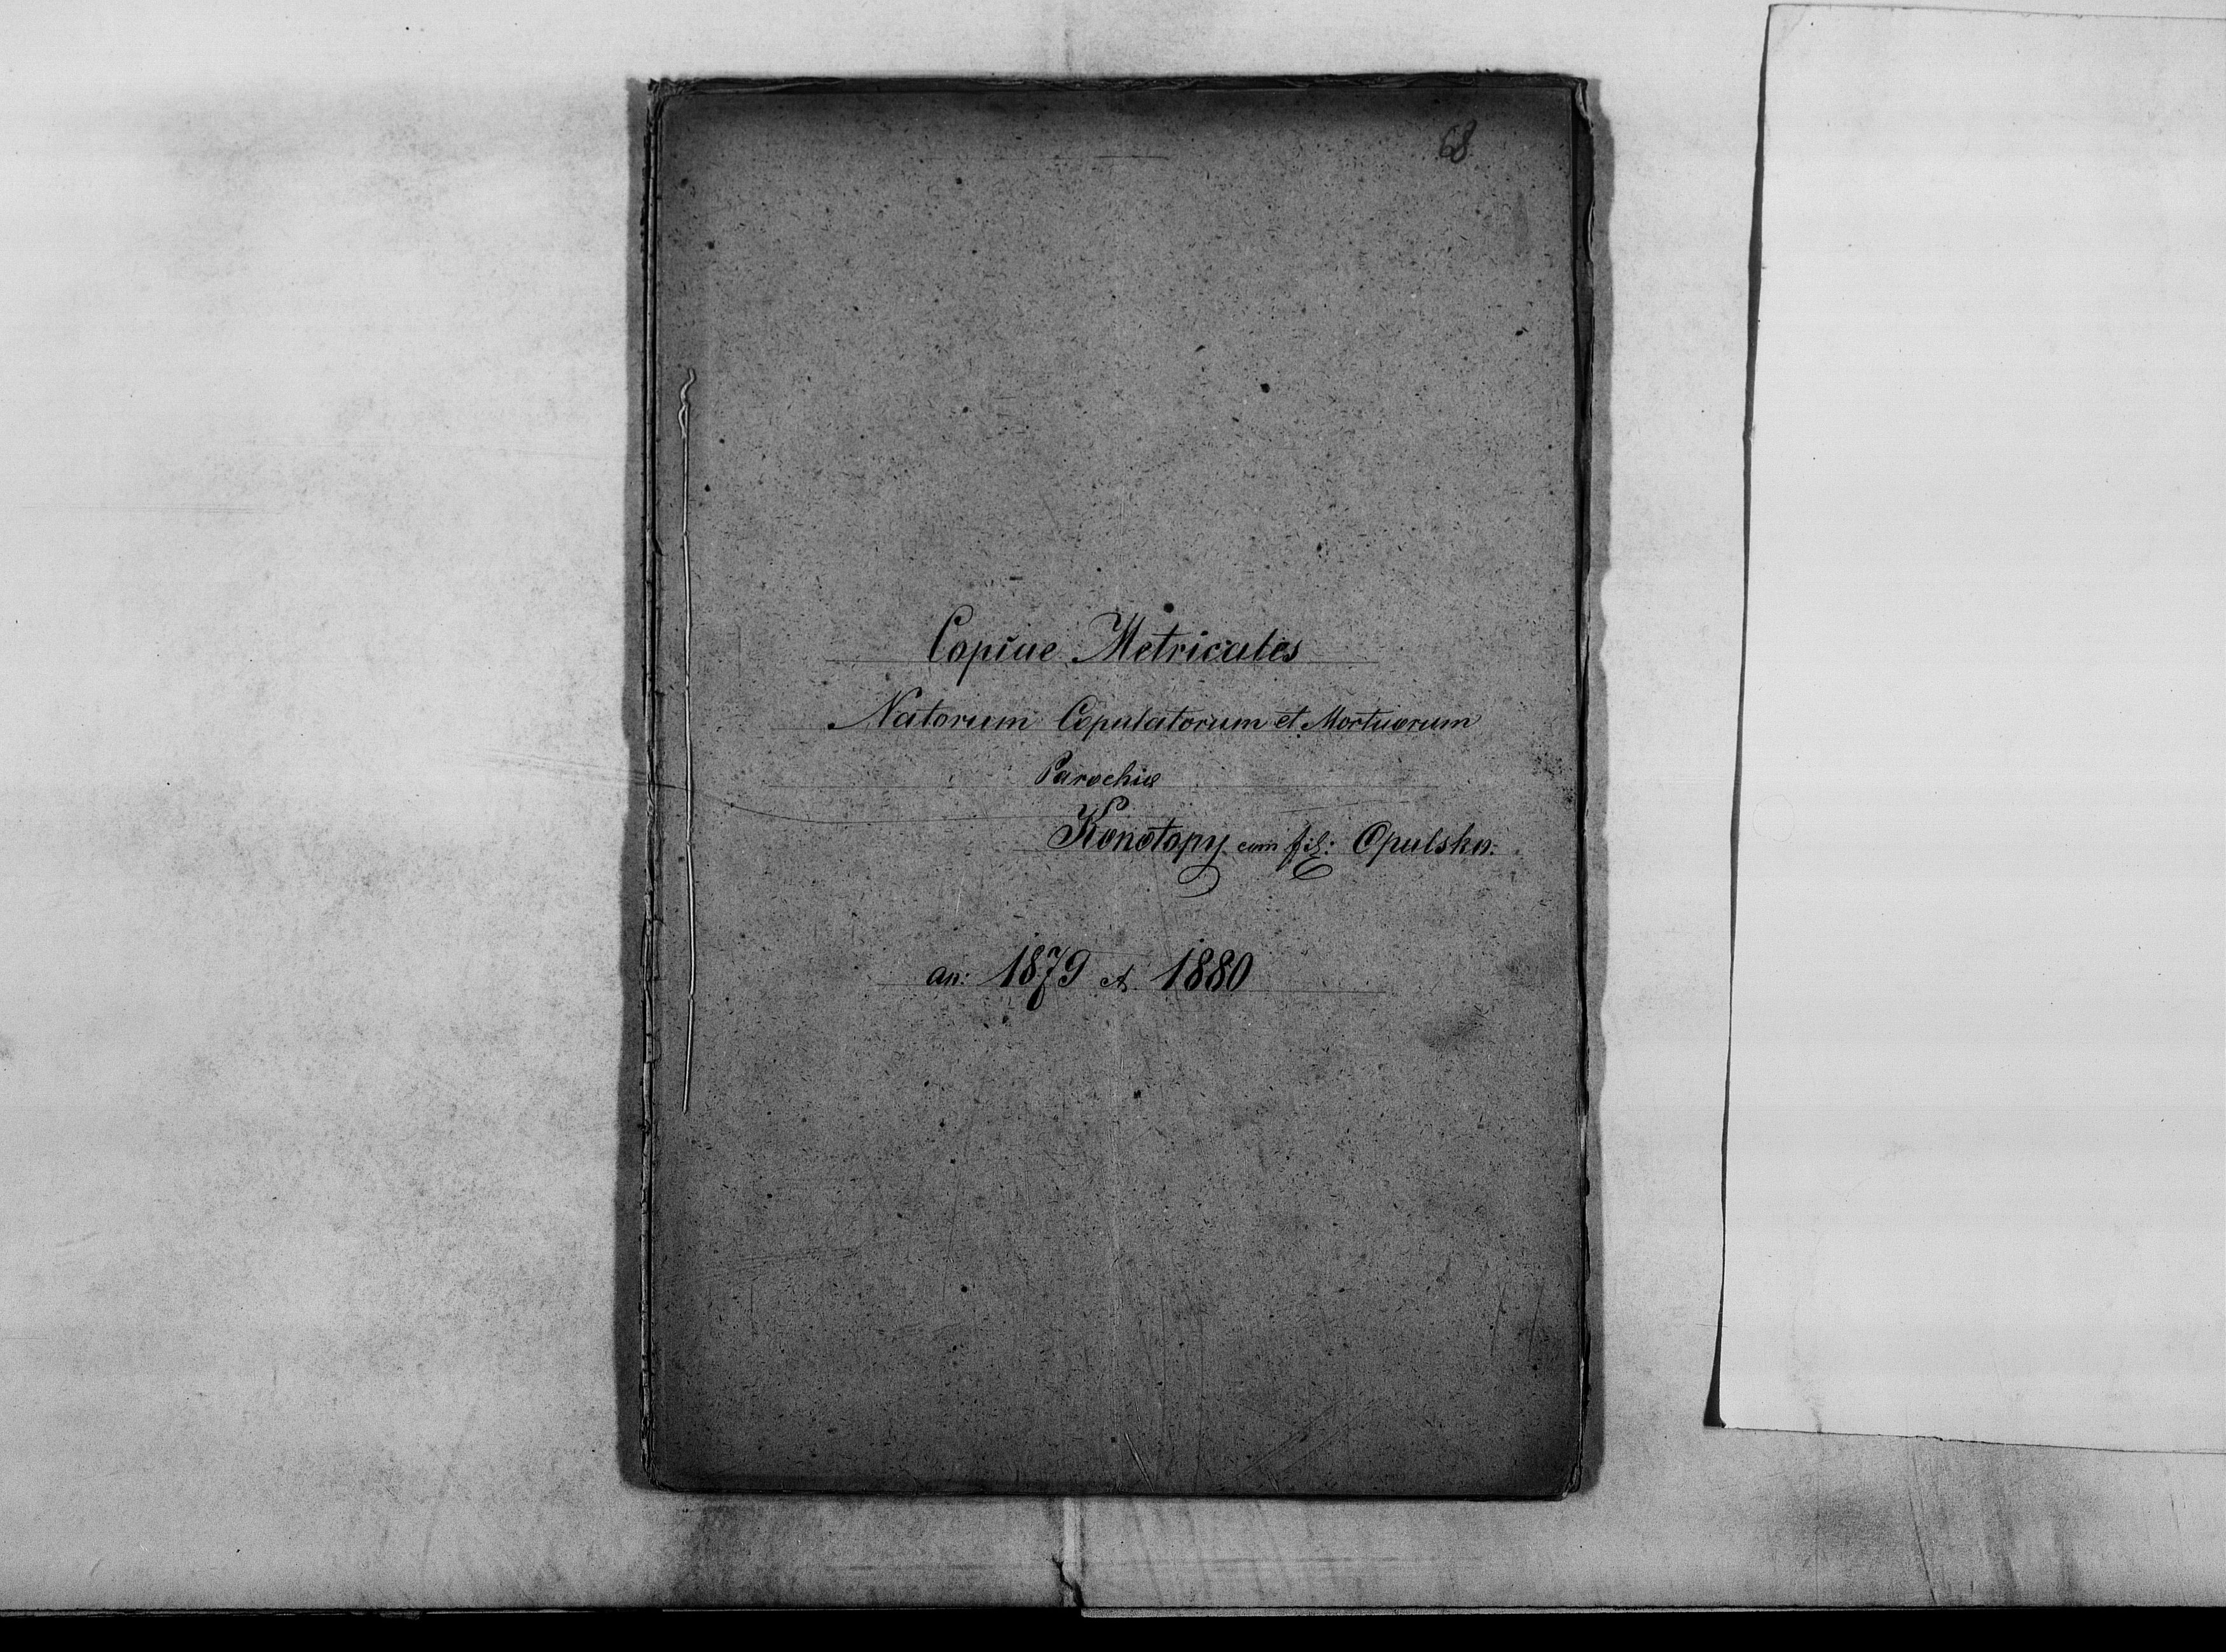 68
Copiae Metricales
Natorum Copulatorum et Mortuorum
Parochiæ
Konotopy cum fil: Opulsko.
an: 1879 et 1880